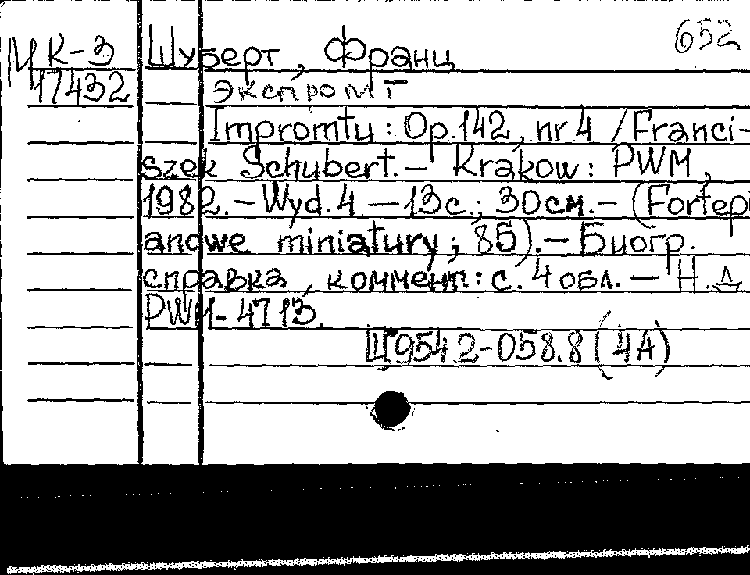 652
МК-3 Шуберт, Франц
47432 Экспромт
Impromtu: Op.142, nr 4 / Franci-
szek Schubert.— Krakow: PWM,
1982.— Wyd. 4 — 13 с.; 30 см.— (Fortepi
anowe miniatury; 85).— Биогр.
справка, коммент: с. 4 обл.— Н.д.
PWM-4713.
Ц9542-058.8(4А)